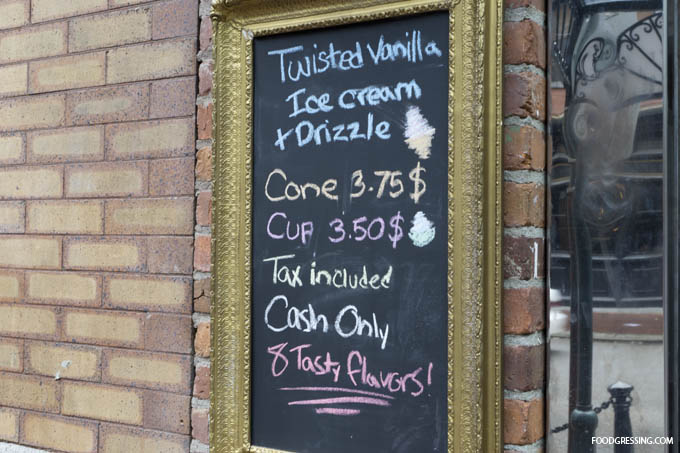 Twisted Vanilla
Ice cream
+ Drizzle
Cone 3.75$
Cup 3.50$
Tax included
Cash Only
8 Tasty flavors!
FOODGRESSING.COM